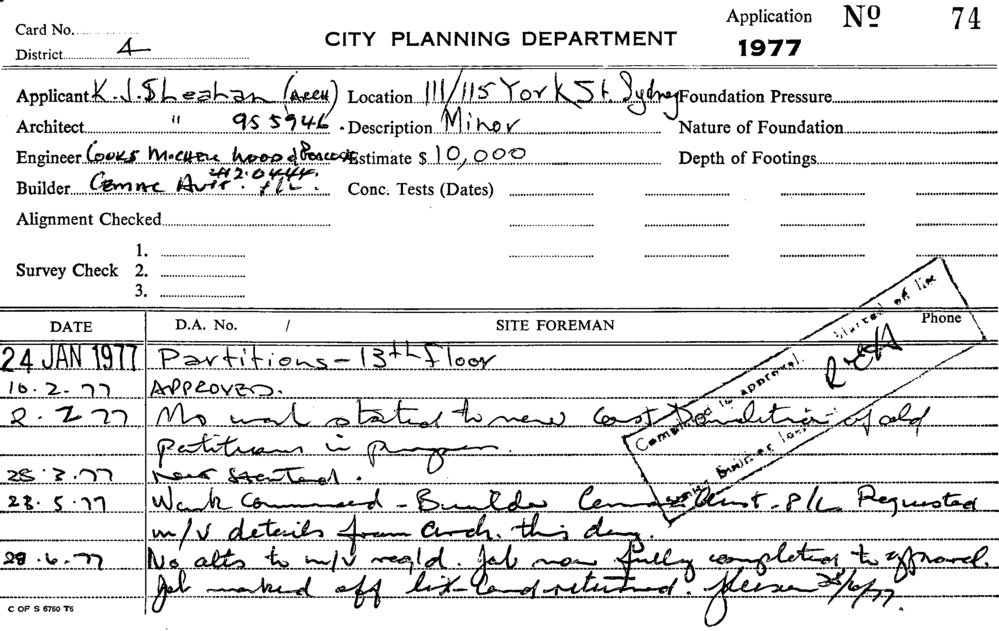 Card No.
District 4
CITY PLANNING DEPARTMENT
Application No 74
1977
Applicant K.J. Sheahan (Arch) Location 111/115 York St. Sydney Foundation Pressure
Architect " 95 5946. Description Minor Nature of Foundation
Engineer Cooke Mitchell Wood & Estimate $ 10,000 Depth of Footings
212.0444.
Builder Cemac P/L. Conc. Tests (Dates)
Alignment Checked
1.
Survey Check 2.
3.
DATE D.A. No. / SITE FOREMAN Phone
24 JAN 1977 Partitions - 13th floor
10.2.77 APPROVED.
2.77 No work started to new Demolition of old
partitions in progress.
28.3.77 Not started.
23.5.77 Work Commenced - Builder P/L Requested
m/v details from Arch. this day.
28.6.77 No alts to m/v req'd. Job now fully completed to approval.
Job marked off list - card returned. 28/6/77.
Completed to approval. Marked off list
REH
C OF S 6760 T6